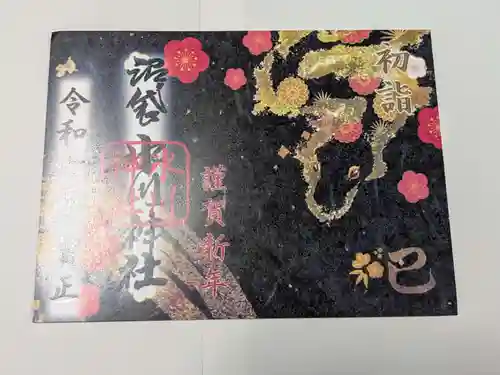 初詣
巳
謹賀新年
沼袋氷川神社
令和
正